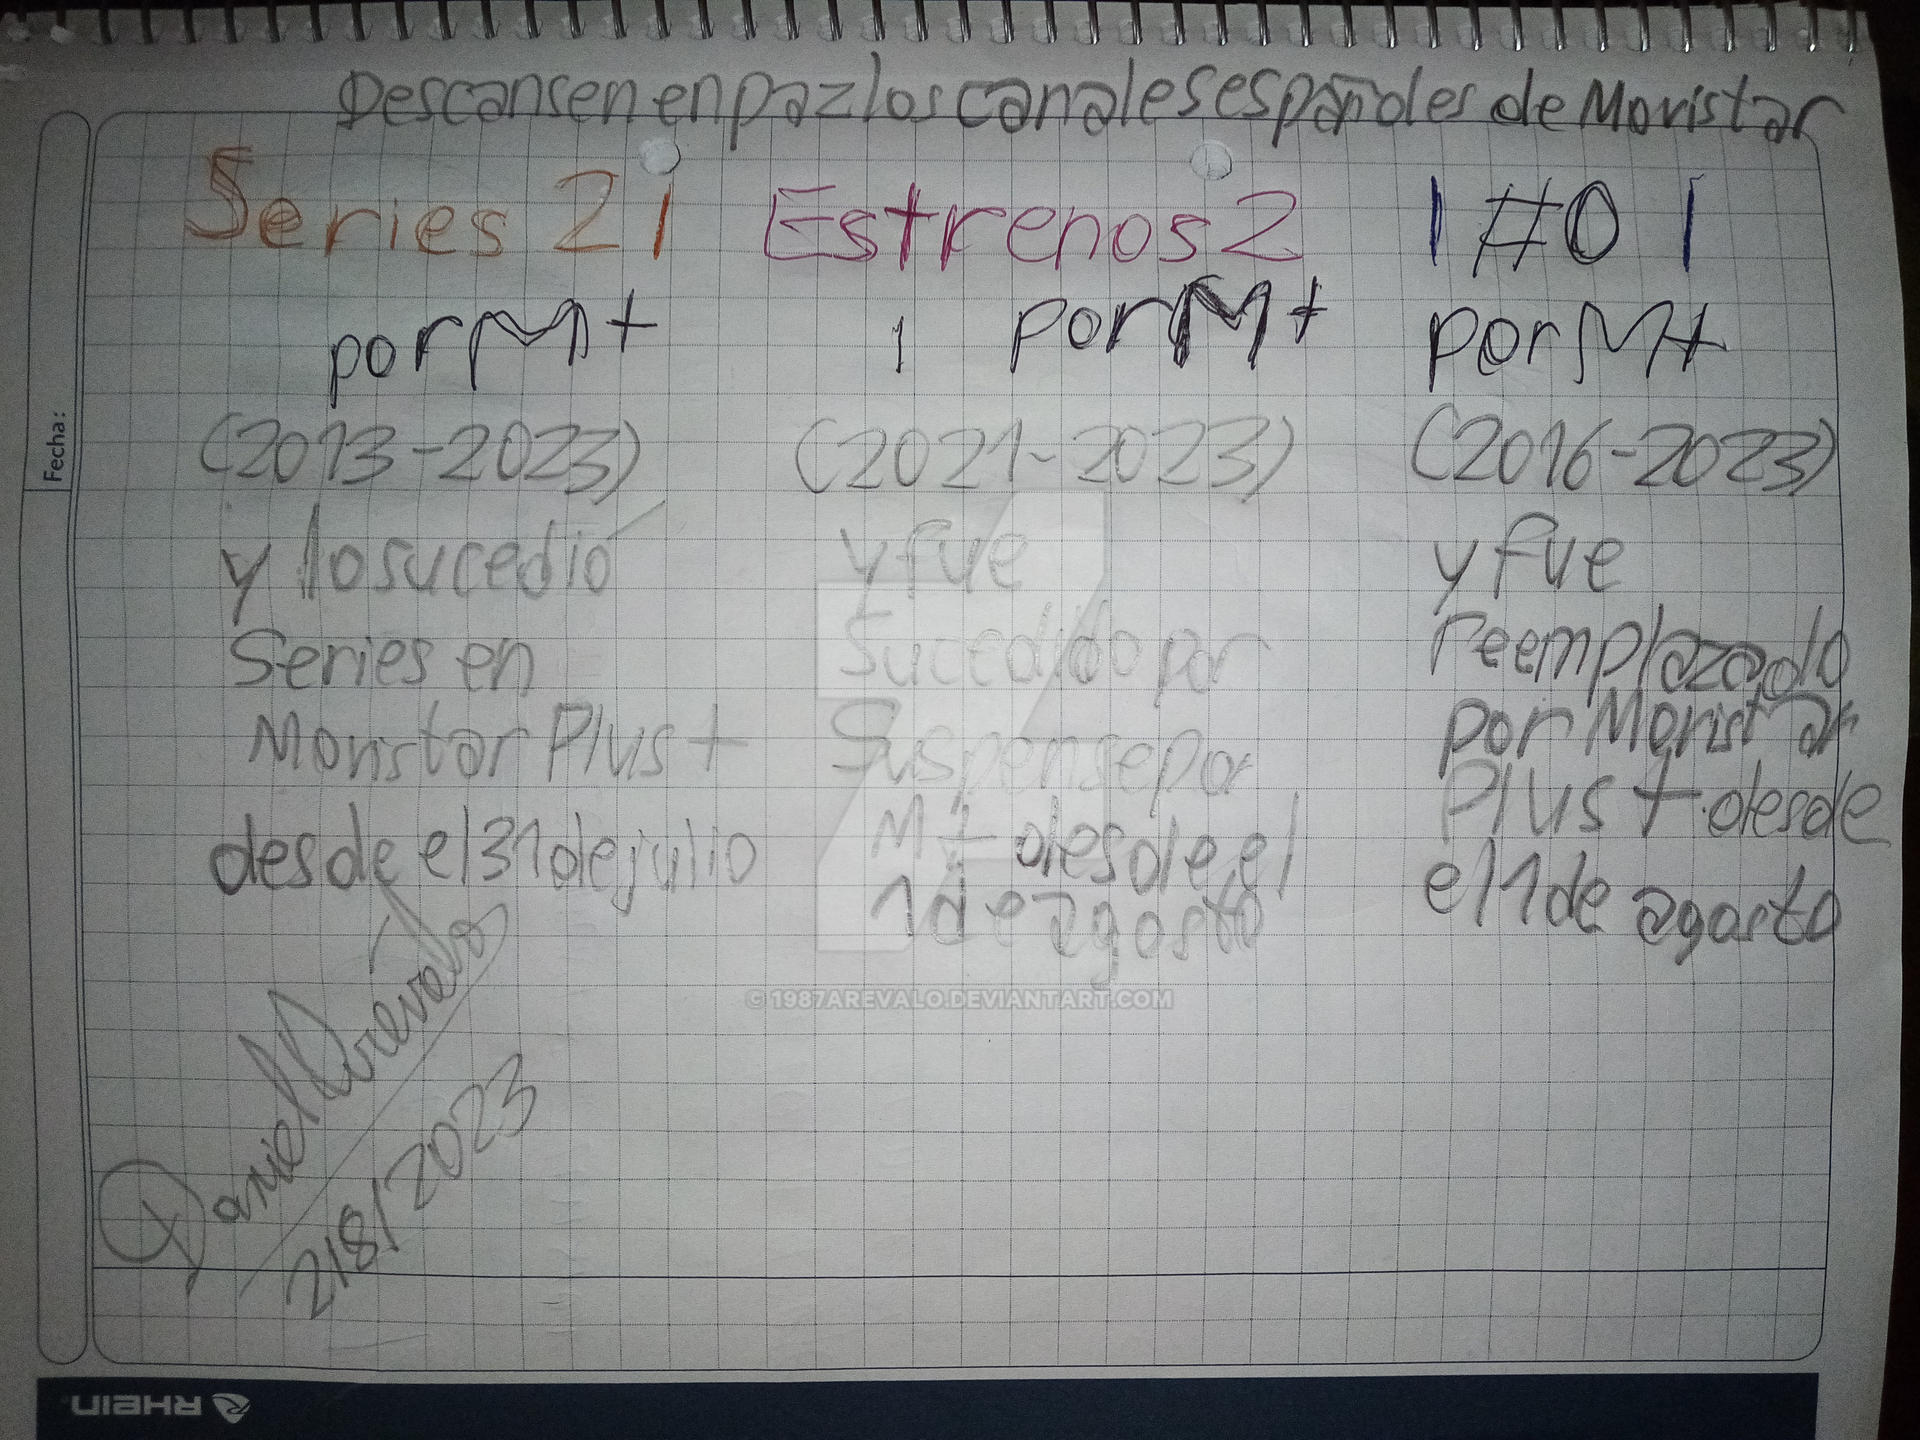 Descansen en paz los canales españoles de Movistar
Series 2 |
por M+
(2013-2023)
y lo sucedió
Series en
Movistar Plus+
desde el 31 de julio
Estrenos 2
| por M+
(2021-2023)
y fue
Sucedido por
Suspense por
M+ desde el
1 de agosto
| #0 |
por M+
(2016-2023)
y fue
reemplazado
por Movistar
Plus+ desde
el 1 de agosto
Daniel Arévalo
2/8/2023
Fecha:
© 1987AREVALO.DEVIANTART.COM
RHEIN